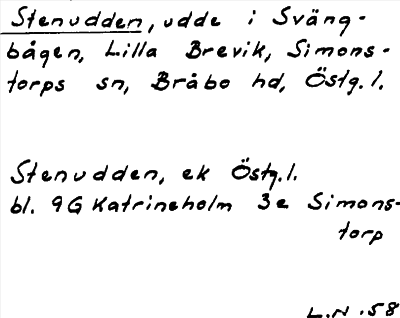 Stenudden, udde i Sväng-
bågen, Lilla Brevik, Simons-
torps sn, Bråbo hd, Östg. l.
Stenudden, ek Östg. l.
bl. 9G Katrineholm 3e Simons-
torp
L.N. 58